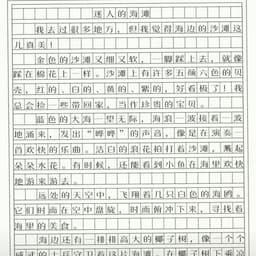 迷人的海滩
我去过很多地方，但我觉得海边的沙滩这
儿真美！
金色的沙滩又细又软，一脚踩上去，就像
踩在棉花上一样。沙滩上有许多五颜六色的贝
壳，红的、白的、黄的、紫的，好看极了！我
总会捡一些带回家，当作珍贵的宝贝。
蓝色的大海一望无际，海浪一波接着一波
地涌来，发出“哗哗”的声音，像是在演奏一
首欢快的乐曲。洁白的浪花拍打着沙滩，溅起
朵朵水花。有时候，还能看到小鱼在海里欢快
地游来游去。
远处的天空中，飞翔着几只白色的海鸥。
它们时而在空中盘旋，时而俯冲下来，寻找着
海里的美食。
海边还有一排排高大的椰子树，像一个个
威武的士兵守卫着这片海滩。在椰子树下乘凉